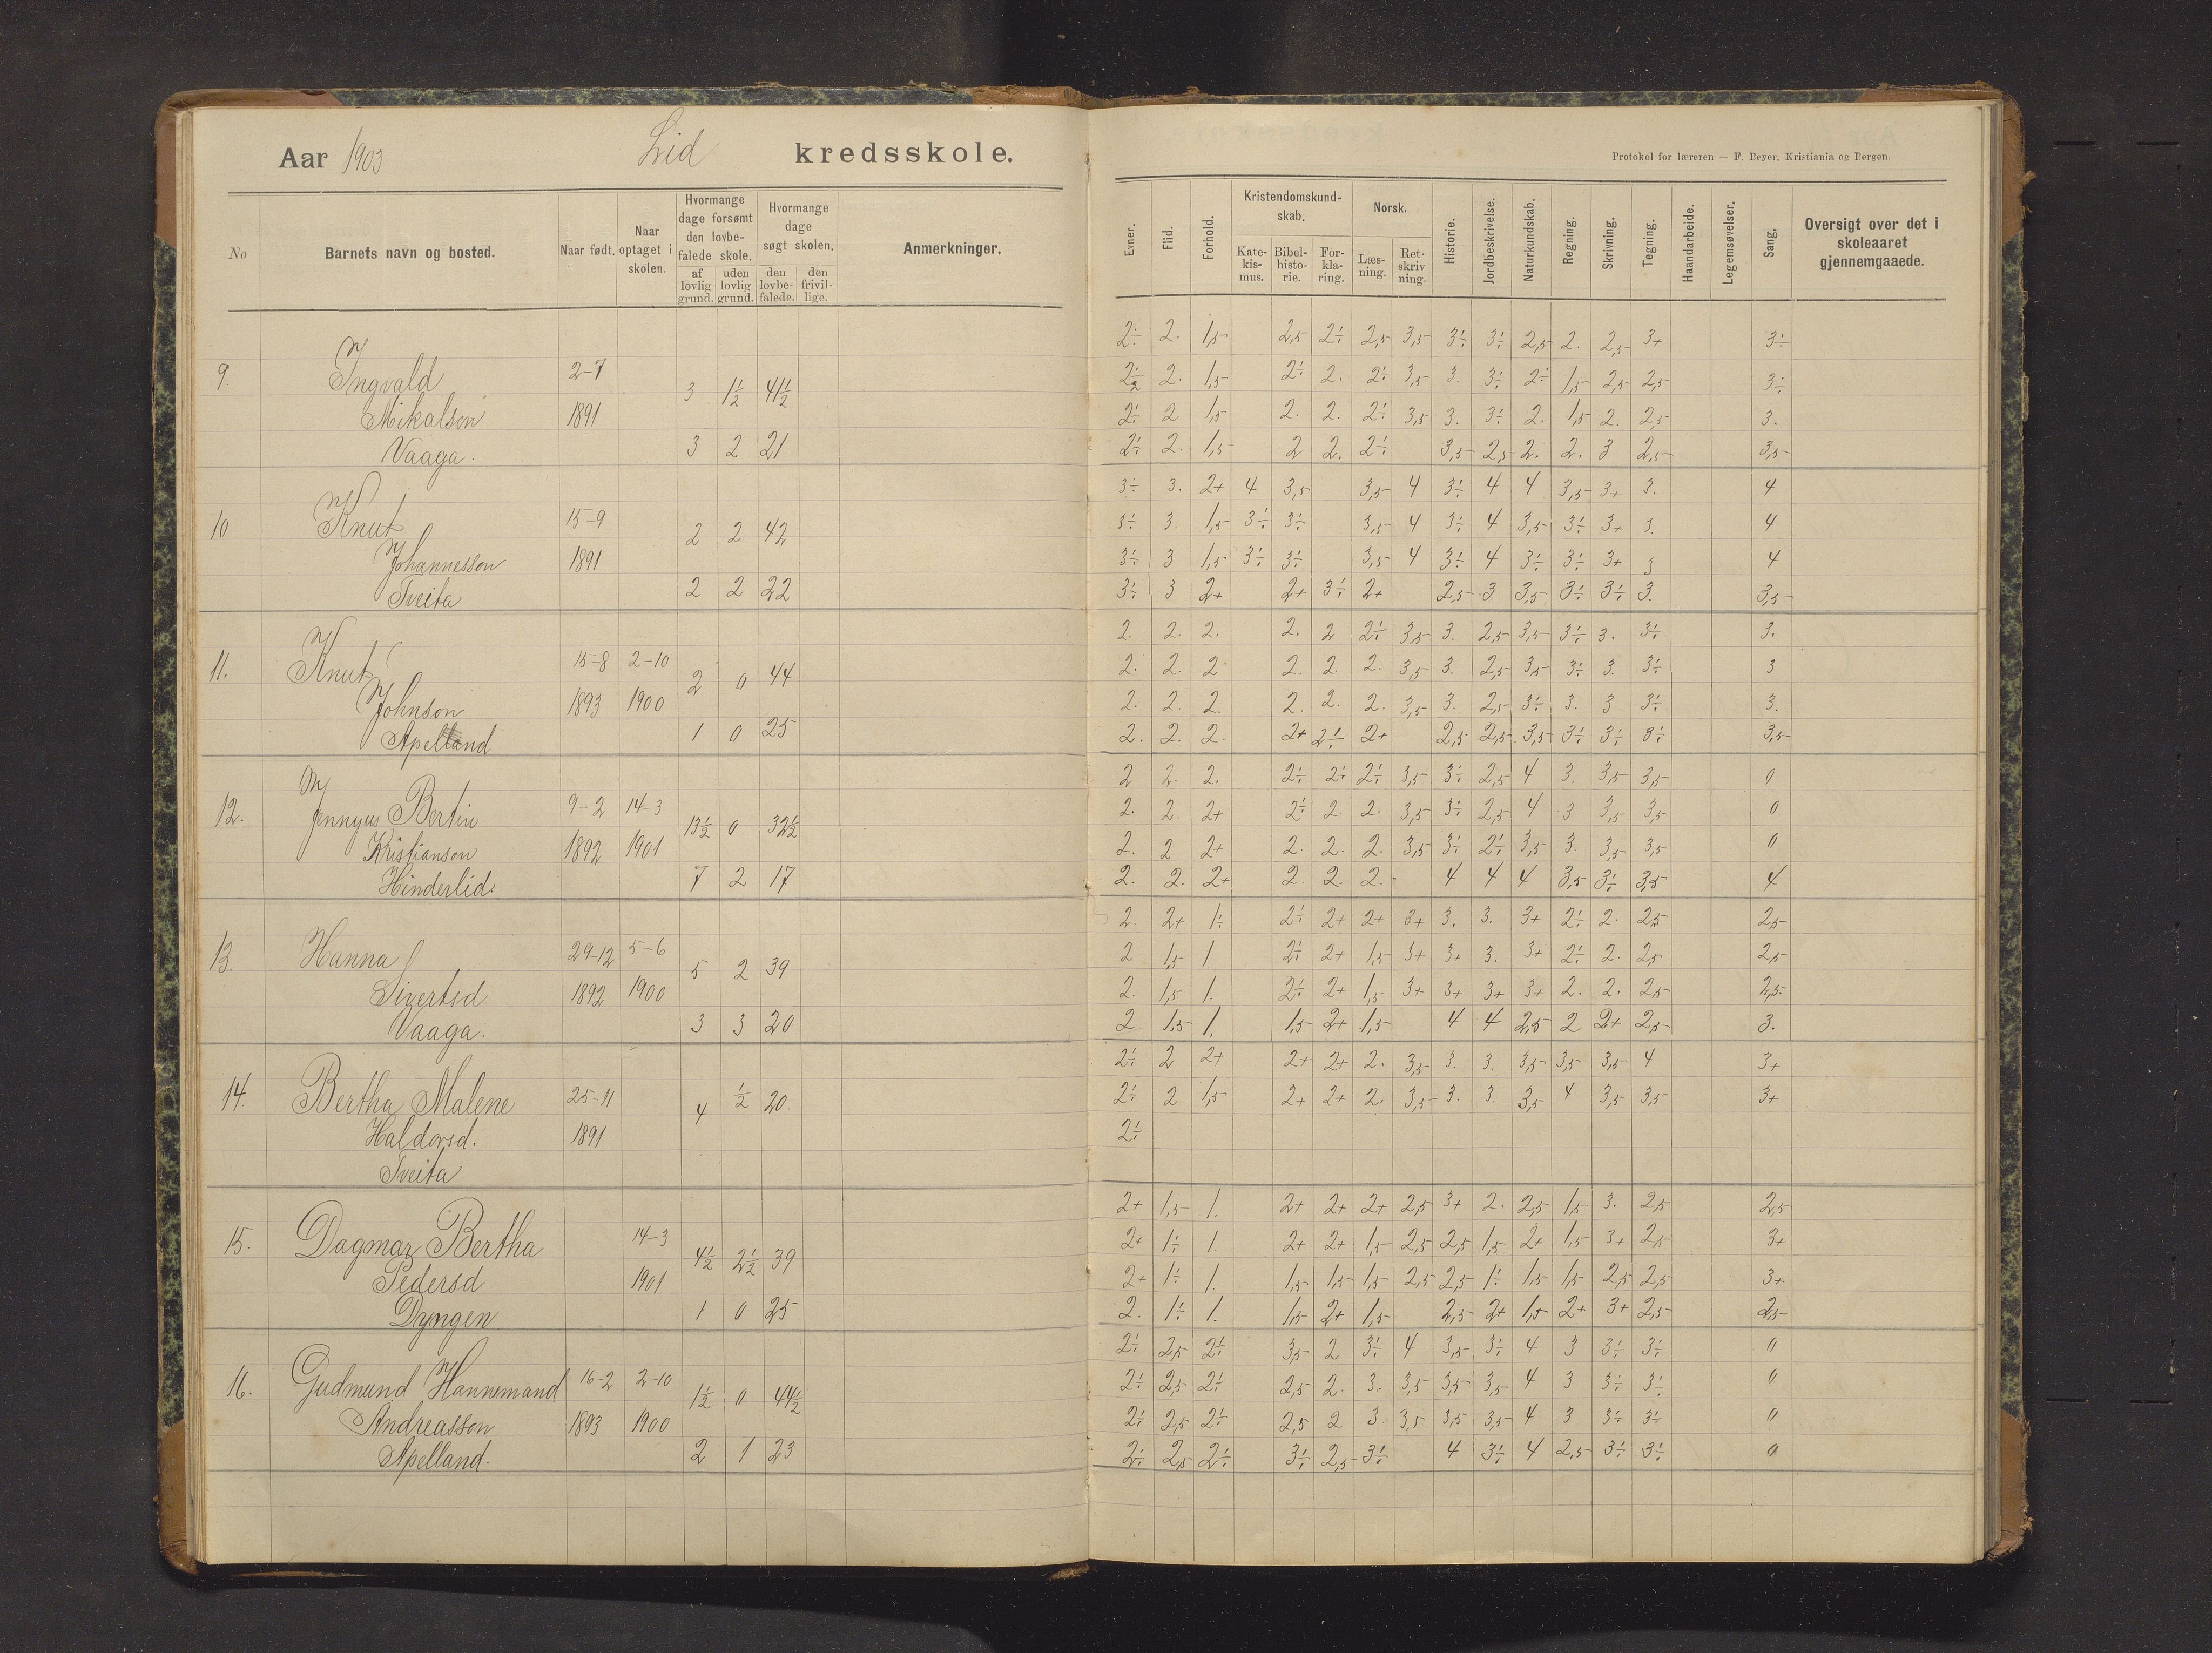 Aar 1903 Lid kredsskole.
Protokol for læreren — F. Beyer, Kristiania og Bergen.
No
Barnets navn og bosted.
Naar født.
Naar optaget i skolen.
Hvormange dage forsømt den lovbefalede skole.
af lovlig grund.
uden lovlig grund.
Hvormange dage søgt skolen.
den lovbefalede.
den frivillige.
Anmerkninger.
Evner.
Flid.
Forhold.
Kristendomskundskab.
Katekismus.
Bibelhistorie.
Forklaring.
Norsk.
Læsning.
Retskrivning.
Historie.
Jordbeskrivelse.
Naturkundskab.
Regning.
Skrivning.
Tegning.
Haandarbeide.
Legemsøvelser.
Sang.
Oversigt over det i skoleaaret gjennemgaaede.
2÷ 2. 1,5 2,5 2÷ 2,5 3,5 3÷ 3÷ 2,5 2. 2,5 3+ 3÷
9. Ingvald 2-7 3 1½ 41½ 2÷ 2. 1,5 2÷ 2. 2÷ 3,5 3. 3÷ 2÷ 1,5 2,5 2,5 3÷
Mikalsen 1891 2÷ 2 1,5 2. 2. 2÷ 3,5 3. 3÷ 2. 1,5 2. 2,5 3.
Vaaga. 3 2 21 2÷ 2. 1,5 2 2. 2÷ 3,5 2,5 2. 2. 3 2,5 3,5
3÷ 3. 2+ 4 3,5 3,5 4 3÷ 4 4 3,5 3+ 3. 4
10 Knut 15-9 2 2 42 3÷ 3. 1,5 3÷ 3÷ 3,5 4 3÷ 4 3,5 3÷ 3+ 3. 4
Johannesson 1891 3÷ 3 1,5 3÷ 3÷ 3,5 4 3÷ 4 3÷ 3÷ 3+ 3 4
Tveita 2 2 22 3÷ 3 2+ 2+ 3÷ 2+ 2,5 3 3,5 3÷ 3÷ 3. 3,5
2. 2. 2. 2. 2 2÷ 3,5 3. 2,5 3,5 3÷ 3. 3÷ 3.
11. Knut 15-8 2-10 2 0 44 2. 2. 2 2. 2. 2. 3,5 3. 2,5 3,5 3÷ 3. 3÷ 3
Johnson 1893 1900 2. 2. 2. 2. 2. 2. 3,5 3. 2,5 3÷ 3. 3 3÷ 3.
Apelland 1 0 25 2. 2. 2. 2+ 2÷ 2+ 2,5 2,5 3,5 3÷ 3÷ 3÷ 3,5
2 2. 2. 2÷ 2÷ 2÷ 3,5 3÷ 2,5 4 3. 3,5 3,5 0
12. Jennyus Bertin 9-2 14-3 13½ 0 32½ 2. 2. 2+ 2÷ 2. 2. 3,5 3÷ 2,5 4 3 3,5 3,5 0
Kristianson 1892 1901 2. 2 2+ 2. 2. 2. 3,5 3÷ 2÷ 3,5 3. 3,5 3,5 0
Hinderlid. 7 2 17 2. 2. 2+ 2. 2. 2. 4 4 4 3,5 3÷ 3,5 4
2. 2+ 1÷ 2÷ 2+ 2+ 3+ 3. 3. 3+ 2÷ 2. 2,5 2,5
13. Hanna 29-12 5-6 5 2 39 2 1,5 1 2÷ 2+ 1,5 3+ 3+ 3. 3+ 2÷ 2. 2,5 2,5
Sivertsd 1892 1900 2. 1,5 1. 2÷ 2+ 1,5 3+ 3+ 3+ 3+ 2. 2. 2,5 2,5
Vaaga. 3 3 20 2 1,5 1. 1,5 2+ 1,5 4 4 2,5 2 2+ 2,5 3.
2÷ 2 2+ 2+ 2+ 2. 3,5 3. 3. 3,5 3,5 3,5 4 3+
14. Bertha Malene 25-11 4 ½ 20. 2÷ 2 1,5 2+ 2+ 2. 3,5 3. 3. 3,5 4 3,5 3,5 3+
Haldorsd. 1891 2÷
Tveita
2+ 1,5 1. 2+ 2+ 2+ 2,5 3+ 2. 2,5 1,5 3. 2,5 2,5
15. Dagmar Bertha 14-3 4½ 2½ 39 2+ 1÷ 1. 2+ 2+ 1,5 2,5 2,5 1,5 2+ 1,5 3+ 2,5 3+
Pedersd 1901 2+ 1÷ 1. 1,5 1,5 1,5 2,5 2,5 1÷ 1,5 1,5 2,5 2,5 3+
Dyngen 1 0 25 2. 1÷ 1. 1,5 2+ 1,5 2,5 2+ 1,5 2+ 3+ 2,5 2,5
2÷ 2,5 2÷ 3,5 2 3÷ 4 3,5 3÷ 4 3 3÷ 3÷ 0
16. Gudmund Hannemand 16-2 2-10 1½ 0 44½ 2÷ 2,5 2÷ 2,5 2. 3. 3,5 3,5 3,5 4 3 3÷ 3÷ 0
Andreasson 1893 1900 2÷ 2,5 2÷ 2,5 2 3. 3,5 3,5 3,5 4 3 3÷ 3÷ 0
Apelland. 2 1 23 2÷ 2,5 2÷ 3÷ 2,5 3÷ 4 3÷ 4 2,5 3÷ 3÷ 0